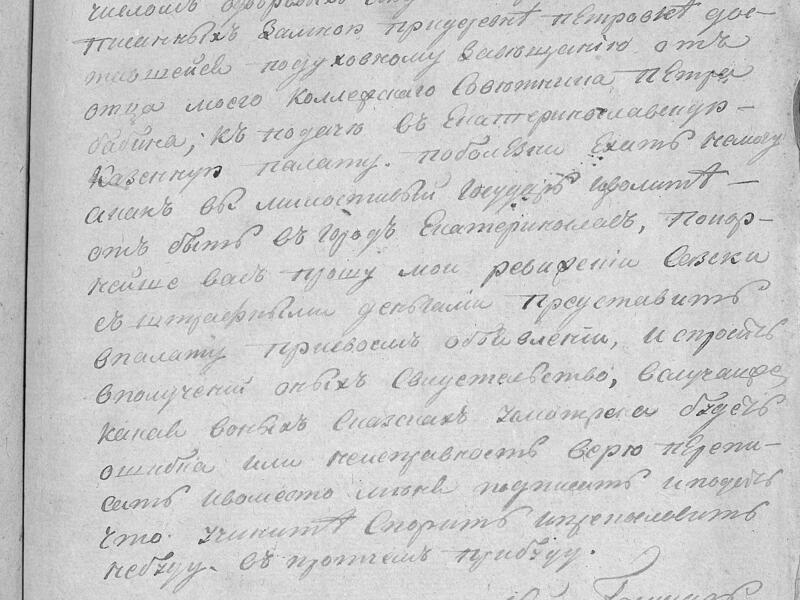 писанныхъ замною придеревнѣ петровкѣ дос-
тавшейся подуховному завещанію отъ
отца моего коллежскаго Советника петра
бабина, къ подачю въ Екатеринославскую
Казенную палату. поболезни ехать немогу
анакъ вы милостивый государь изволитѣ
отъ быть въ городъ Екатеринославъ, покор-
нейше васъ прошу мои ревижскіи Скаски
съ штрафными деньгами представить
впалату присвоемъ объявленіи, испросить
вполучении оныхъ Свидетельство, вслучаеже
какая воныхъ Сказкахъ усмотрена будетъ
ошибка или неисправность верю перепи-
сать ивместо меня подписать иподать
что учинитѣ Спорить ипрекословить
небуду. въ протчемъ прибуду.